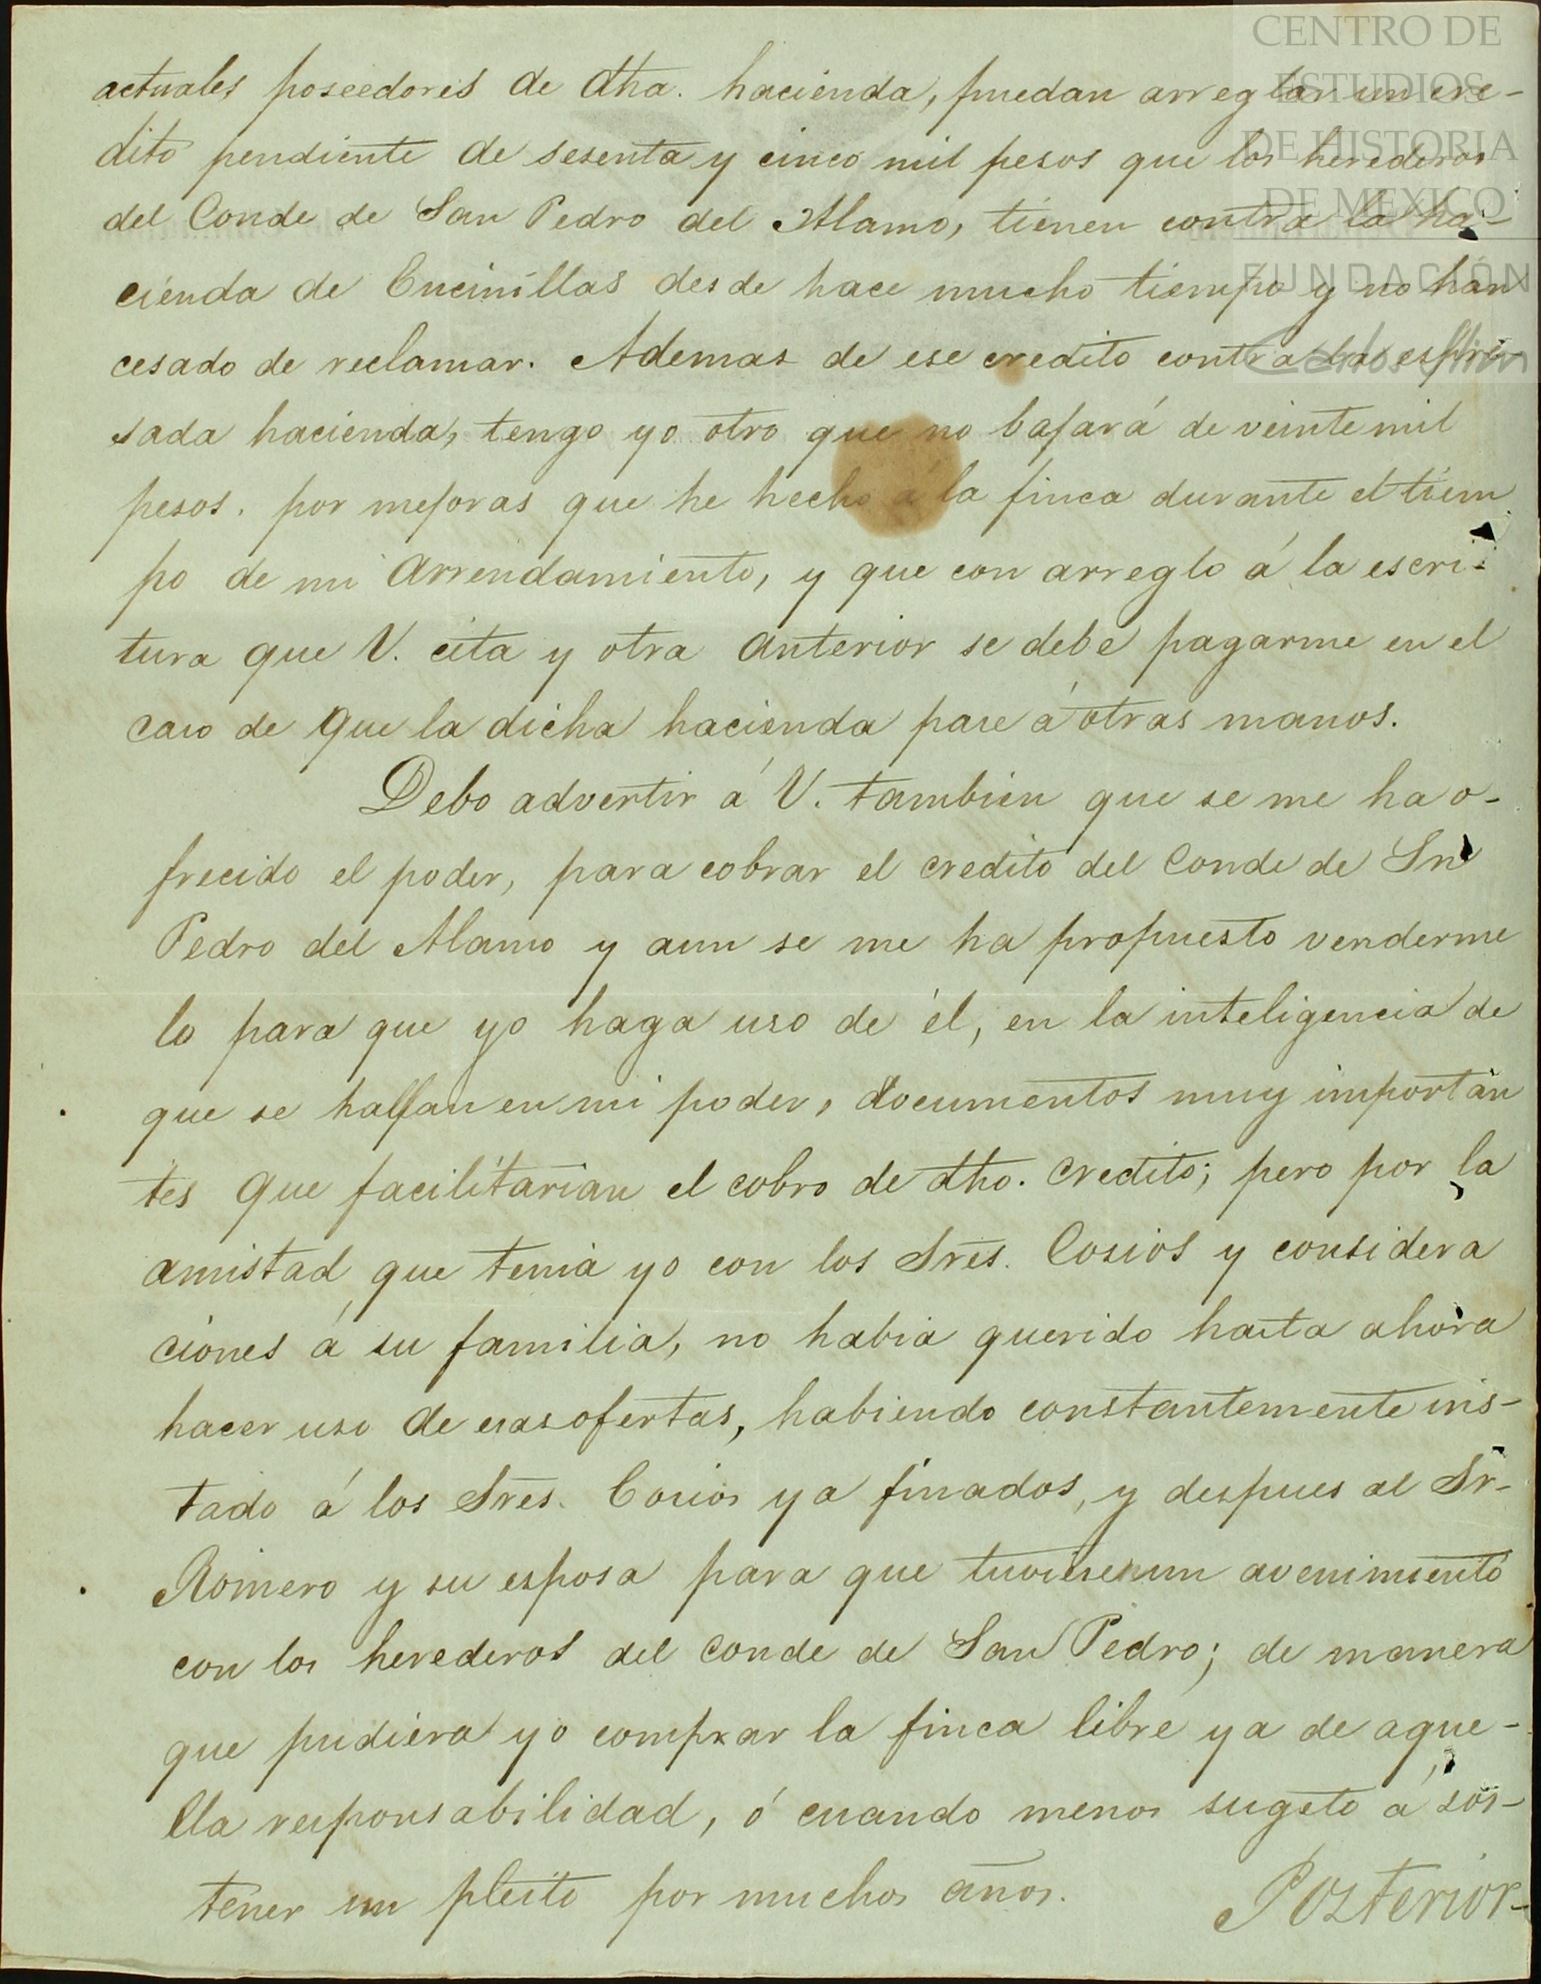 CENTRO DE
ESTUDIOS
DE HISTORIA
DE MEXICO
FUNDACIÓN
Carlos Slim
actuales poseedores de dha. hacienda, puedan arreglar un cre-
dito pendiente de sesenta y cinco mil pesos que los herederos
del Conde de San Pedro del Alamo, tienen contra la ha-
cienda de Encinillas desde hace mucho tiempo y no han
cesado de reclamar. Ademas de ese credito contra la espre-
sada hacienda, tengo yo otro que no bajará de veinte mil
pesos. por mejoras que he hecho á la finca durante el tiem
po de mi arrendamiento, y que con arreglo á la escri-
tura que V. cita y otra anterior se debe pagarme en el
caso de que la dicha hacienda pase á otras manos.
Debo advertir á V. tambien que se me ha o-
frecido el poder, para cobrar el credito del Conde de Sn
Pedro del Alamo y aun se me ha propuesto venderme
lo para que yo haga uso de él, en la inteligencia de
que se hallan en mi poder, documentos muy importan
tes que facilitarian el cobro de dho. credito; pero por la
amistad que tenia yo con los Sres. Cosios y considera
ciones á su familia, no habia querido hasta ahora
hacer uso de esas ofertas, habiendo constantemente ins-
tado á los Sres. Cosios ya finados, y despues al Sr-
Romero y su esposa para que tuvieren un avenimiento
con los herederos del Conde de San Pedro; de manera
que pudiera yo comprar la finca libre ya de aque-
lla responsabilidad, ó cuando menos sugeto á sos-
tener un pleito por muchos años.
Posterior-